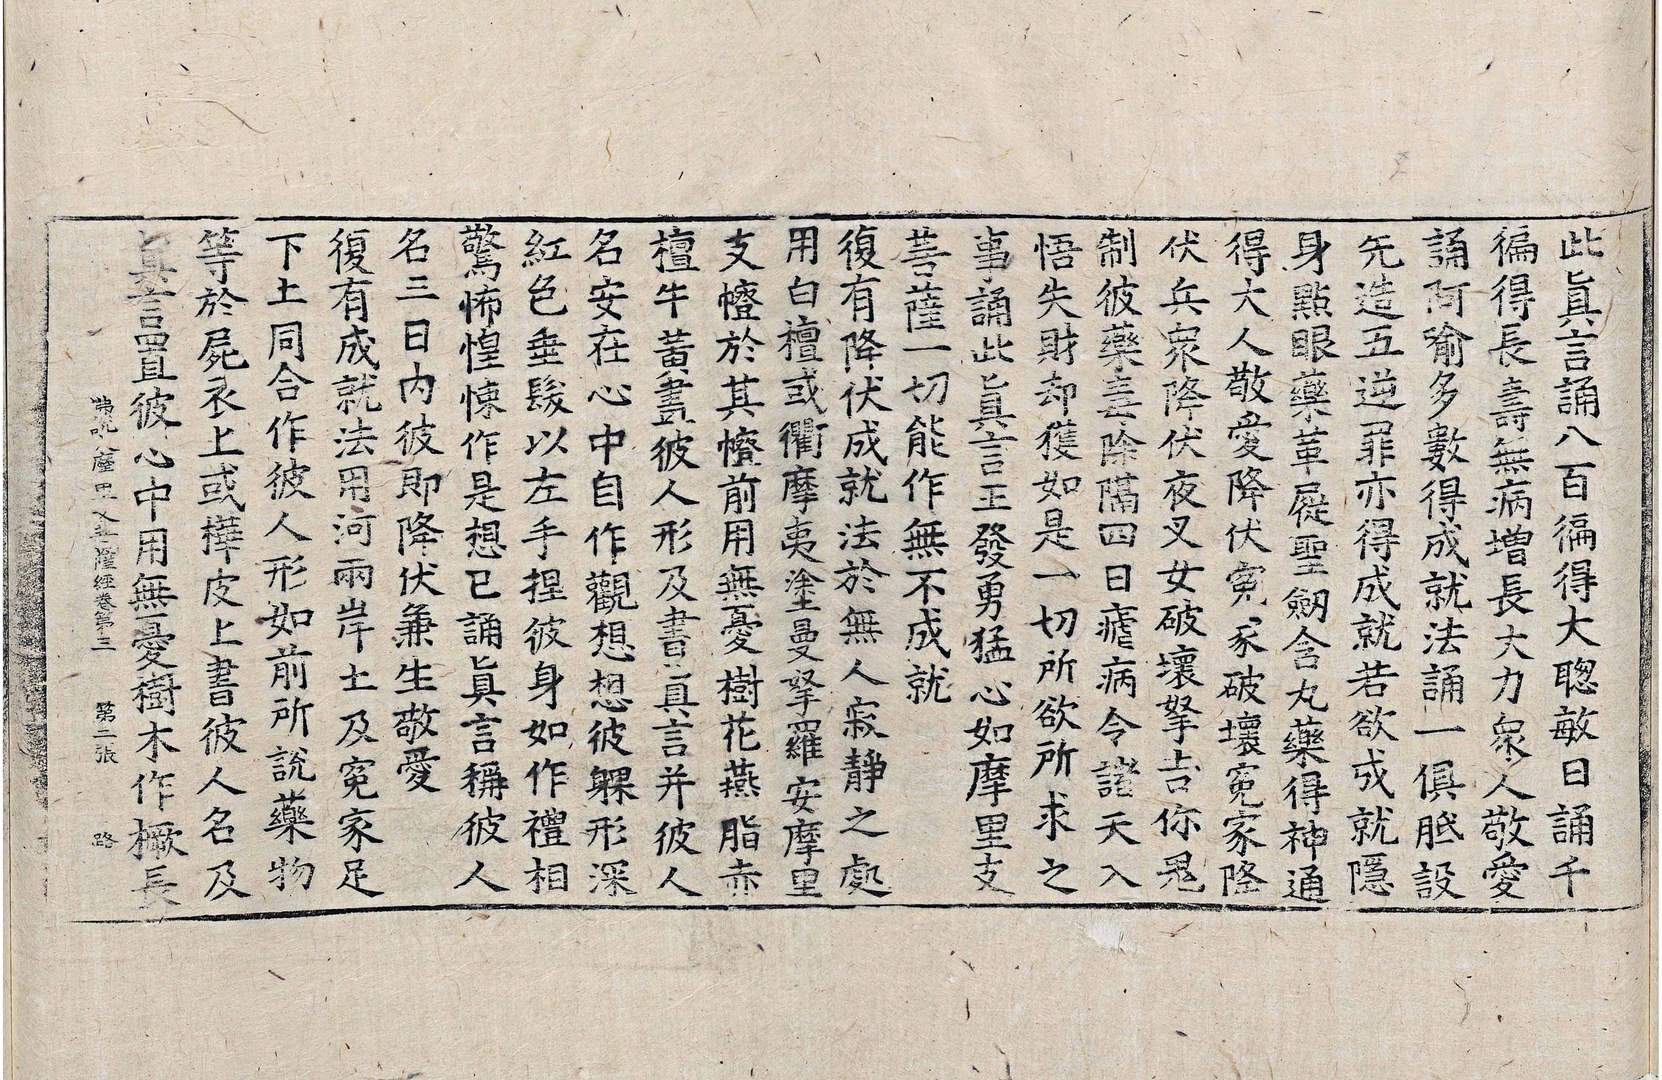 此眞言誦八百徧得大聦敏日誦千
徧得長壽無病增長大力衆人敬愛
誦阿喻多數得成就法誦一俱胝設
先造五逆罪亦得成就若欲成就隱
身點眼藥革屣聖劒含丸藥得神通
得大人敬愛降伏寃家破壞寃家降
伏兵衆降伏夜叉女破壞拏吉你鬼
制彼藥毒除隔四日瘧病令諸天入
悟失財却獲如是一切所欲所求之
事誦此眞言王發勇猛心如摩里支
菩薩一切能作無不成就
復有降伏成就法於無人寂靜之處
用白檀或衢摩夷塗曼拏羅安摩里
支㡧於其㡧前用無憂樹花燕脂赤
檀牛黃畫彼人形及書眞言并彼人
名安在心中自作觀想想彼躶形深
紅色垂髮以左手捏彼身如作禮相
驚怖惶悚作是想已誦眞言稱彼人
名三日内彼即降伏兼生敬愛
復有成就法用河兩岸土及寃家足
下土同合作彼人形如前所說藥物
等於屍衣上或樺皮上書彼人名及
眞言置彼心中用無憂樹木作橛長
薩經卷第三 第二張 路